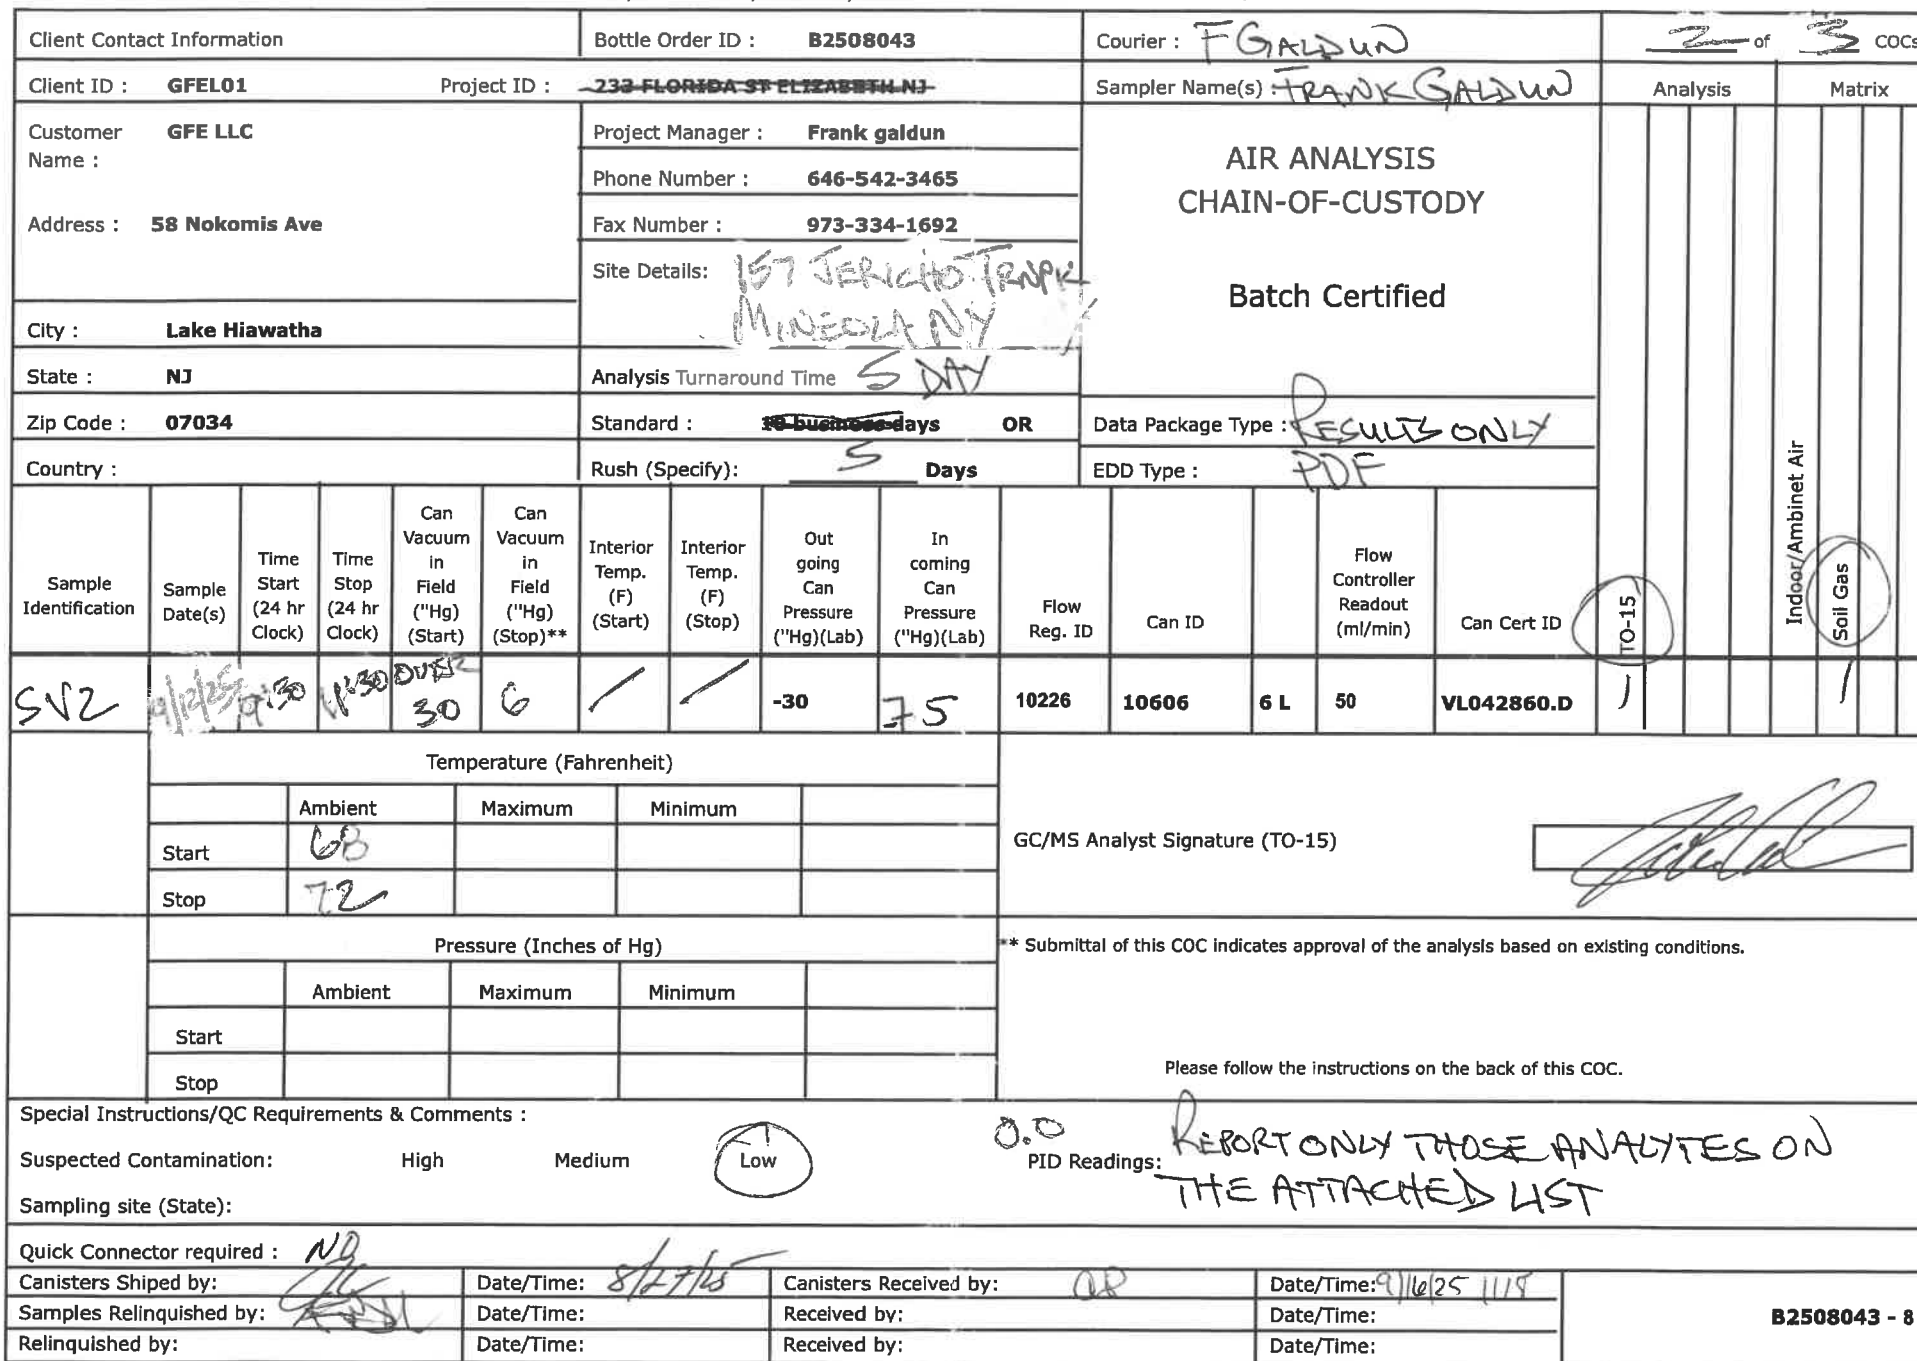 Client Contact Information
Bottle Order ID : B2508043
Courier : F GALDUN
2 of 3 COCs
Client ID : GFEL01 Project ID : 233 FLORIDA ST ELIZABETH NJ
Sampler Name(s) : FRANK GALDUN
Analysis
Matrix
Customer Name : GFE LLC
Project Manager : Frank galdun
Phone Number : 646-542-3465
Address : 58 Nokomis Ave
Fax Number : 973-334-1692
Site Details: 157 JERICHO TRNPK
MINEOLA NY
AIR ANALYSIS
CHAIN-OF-CUSTODY
Batch Certified
City : Lake Hiawatha
State : NJ
Analysis Turnaround Time 5 DAY
Zip Code : 07034
Standard : 10 business days OR
Data Package Type : RESULTS ONLY
Country :
Rush (Specify): 5 Days
EDD Type : PDF
Sample Identification
Sample Date(s)
Time Start (24 hr Clock)
Time Stop (24 hr Clock)
Can Vacuum in Field ("Hg) (Start)
Can Vacuum in Field ("Hg) (Stop)**
Interior Temp. (F) (Start)
Interior Temp. (F) (Stop)
Out going Can Pressure ("Hg)(Lab)
In coming Can Pressure ("Hg)(Lab)
Flow Reg. ID
Can ID
Flow Controller Readout (ml/min)
Can Cert ID
TO-15
Indoor/Ambinet Air
Soil Gas
SV2 9/12/25 9:30 11:30 OVER 30 6 / / -30 -7.5 10226 10606 6 L 50 VL042860.D / /
Temperature (Fahrenheit)
Ambient Maximum Minimum
Start 68
Stop 72
GC/MS Analyst Signature (TO-15)
Pressure (Inches of Hg)
Ambient Maximum Minimum
Start
Stop
** Submittal of this COC indicates approval of the analysis based on existing conditions.
Please follow the instructions on the back of this COC.
Special Instructions/QC Requirements & Comments :
Suspected Contamination: High Medium Low
0.0
PID Readings: REPORT ONLY THOSE ANALYTES ON
THE ATTACHED LIST
Sampling site (State):
Quick Connector required : NO
Canisters Shiped by: Date/Time: 8/27/25 Canisters Received by: Date/Time: 9/16/25
Samples Relinquished by: Date/Time: Received by: Date/Time:
B2508043 - 8
Relinquished by: Date/Time: Received by: Date/Time: